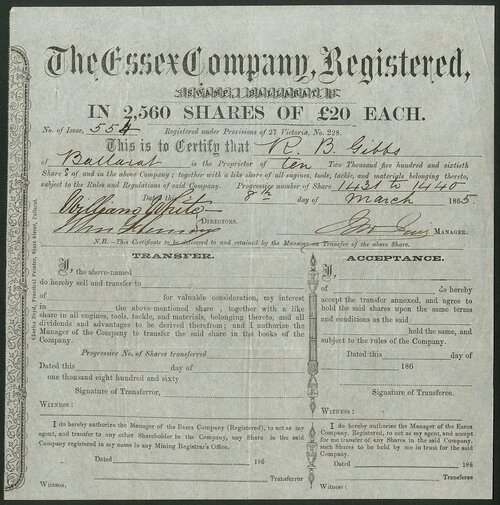 The Essex Company, Registered,
SWAMP, BALLARAT,
IN 2,560 SHARES OF £20 EACH.
No. of Issue, 554 Registered under Provisions of 27 Victoria, No. 228.
This is to Certify that R. B. Gibbs
of Ballarat is the Proprietor of ten Two Thousand five hundred and sixtieth
Share s of and in the above Company; together with a like share of all engines, tools, tackle, and materials belonging thereto,
subject to the Rules and Regulations of said Company. Progressive number of Share 1431 to 1440
Dated this 8th day of March 1865
William White
DIRECTORS.
MANAGER.
N.B.—This Certificate to be delivered to and retained by the Manager on Transfer of the above Share.
TRANSFER.
I, the above-named
do hereby sell and transfer to
of for valuable consideration, my interest
in the above-mentioned share , together with a like
share in all engines, tools, tackle, and materials, belonging thereto, and all
dividends and advantages to be derived therefrom; and I authorize the
Manager of the Company to transfer the said share in the books of the
Company.
Progressive No. of Shares transferred
Dated this day of
one thousand eight hundred and sixty
Signature of Transferror,
WITNESS:
I do hereby authorize the Manager of the Essex Company (Registered), to act as my
agent, and to transfer to any other Shareholder in the Company, any Share in the said
Company registered in my name in any Mining Registrar's Office.
Dated 186
Transferror
Witness,
ACCEPTANCE.
I,
of do hereby
accept the transfer annexed, and agree to
hold the said shares upon the same terms
and conditions as the said
held the same, and
subject to the rules of the Company.
Dated this day of
186
Signature of Transferee.
WITNESS:
I do hereby authorize the Manager of the Essex
Company, Registered, to act as my agent, and accept
for me transfer of any Shares in the said Company,
such Shares to be held by me in trust for the said
Company.
Dated 186
Transferee
Witness:
Charles Boyd, Practical Printer,